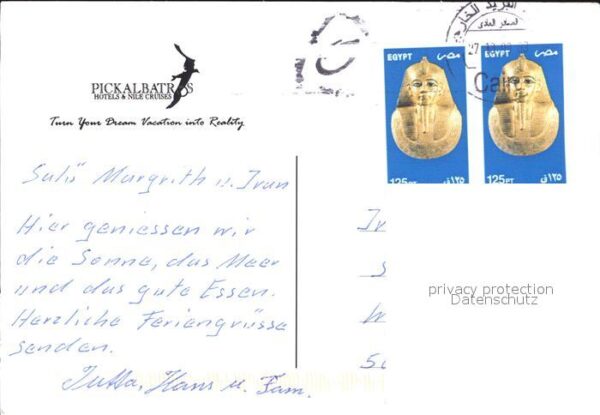 PICKALBATROS
HOTELS & NILE CRUISES
Turn Your Dream Vacation into Reality
EGYPT مصر
125PT ١٢٥ق
EGYPT مصر
125PT ١٢٥ق
البريد الخارجي
Cairo
Salü Margrith u. Ivan
Hier geniessen wir
die Sonne, das Meer
und das gute Essen.
Herzliche Feriengrüsse
senden.
Jutta, Hans u. Fam.
Iv
privacy protection
Datenschutz